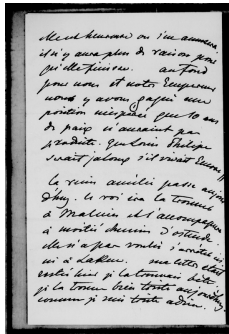 il n'y aura plus de raison pour
qu'elle finisse. au fond
pour nous et notre Empereur
nous y avons gagné une
position inespérée que 10 ans
de paix n'auraient pas
produite. que Louis Philippe
serait jaloux s'il vivait encore
la reine amélie passe
d'huy. le roi ira la trouver
à Malines et l'accompagnera
à moitié chemin d'ostende.
elle n'a pas voulu s'arrêter ici
ni à Laken.
je la trouvais bête
je la trouve bien toute
comme je suis toute